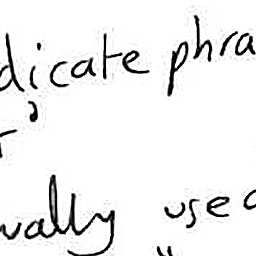 dicate phra
ually used